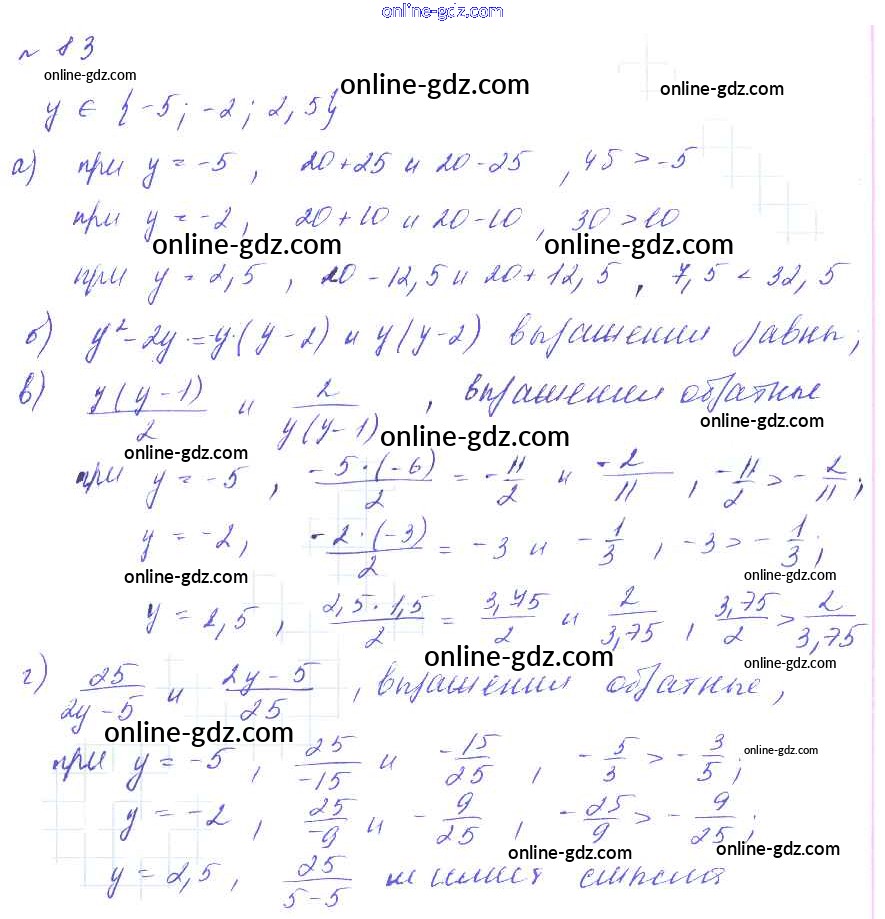 online-gdz.com
№ 83
online-gdz.com
online-gdz.com
online-gdz.com
y ∈ {-5; -2; 2,5}
а) при y = -5, 20+25 и 20-25, 45 > -5
при y = -2, 20+10 и 20-10, 30 > 10
online-gdz.com
online-gdz.com
при y = 2,5, 20-12,5 и 20+12,5, 7,5 < 32,5
б) y² - 2y = y·(y-2) и y(y-2) выражения равны;
в) y(y-1)/2 и 2/y(y-1), выражения обратные
online-gdz.com
online-gdz.com
online-gdz.com
при y = -5, -5·(-6)/2 = -11/2 и -2/11, -11/2 > -2/11;
y = -2, -2·(-3)/2 = -3 и -1/3, -3 > -1/3;
online-gdz.com
online-gdz.com
y = 2,5, 2,5·1,5/2 = 3,75/2 и 2/3,75, 3,75/2 > 2/3,75
online-gdz.com
online-gdz.com
г) 25/2y-5 и 2y-5/25, выражения обратные,
online-gdz.com
online-gdz.com
при y = -5, 25/-15 и -15/25, -5/3 > -3/5;
y = -2, 25/-9 и -9/25, -25/9 > -9/25;
online-gdz.com
online-gdz.com
y = 2,5, 25/5-5 не имеет смысла